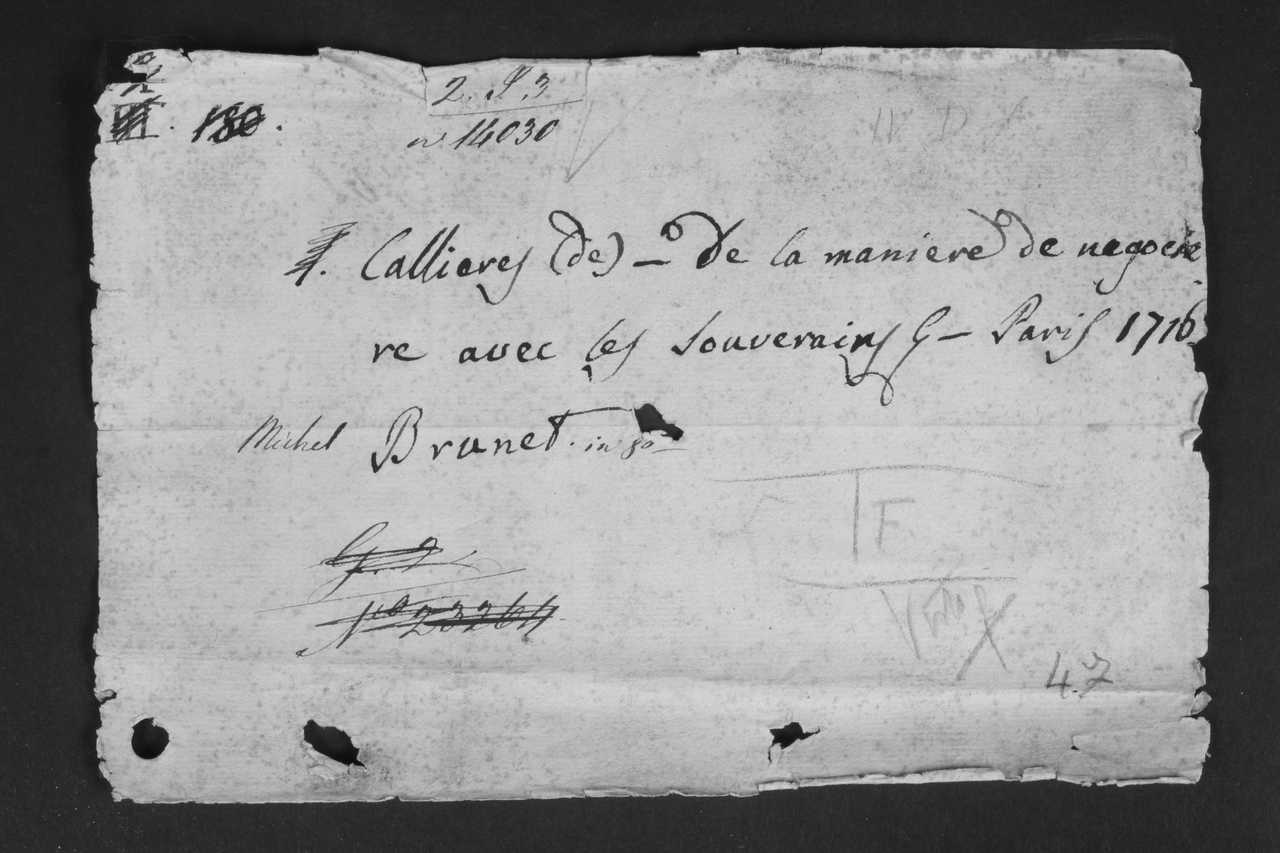 180.
2. S 3
n° 14030
4. Callieres (de) - De la maniere de negocie
re avec les Souverains - Paris 1716
Michel Brunet. in 8°
N° 23264
T F
47